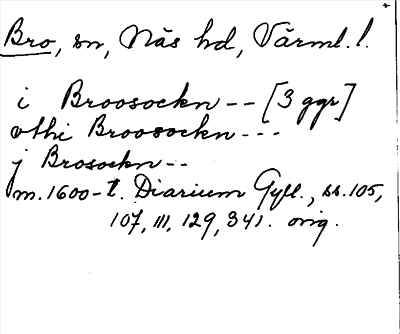 Bro, sn, Näs hd, Värml. l.
i Broosockn -- [3 ggr]
vthi Broosockn ---
j Brosockn --
m. 1600-t. Diarium Gyll., ss. 105,
107, 111, 129, 341. orig.